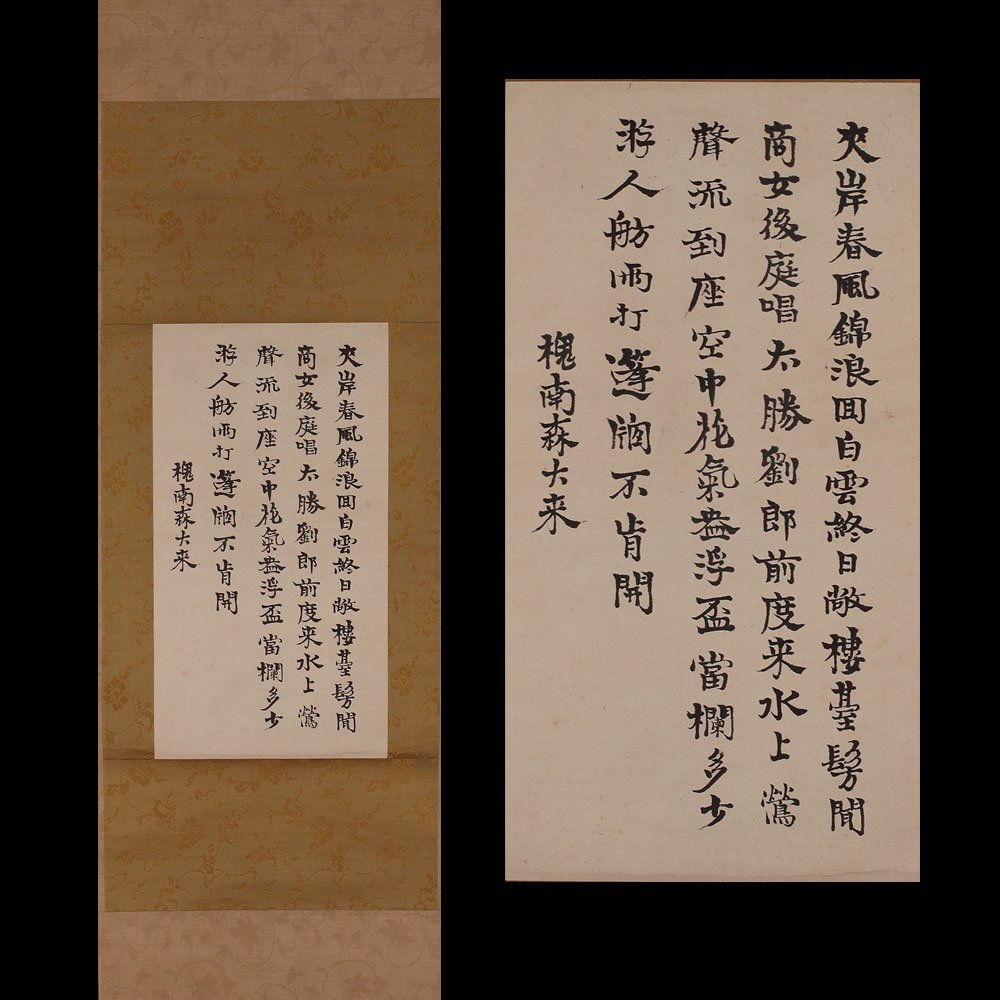 夾岸春風錦浪回白雲終日敞樓臺髣聞
商女後庭唱太勝劉郎前度来水上鶯
聲流到座空中花氣盎浮盃當欄多少
游人舫雨打蓬窗不肯開
槐南森大来
夾岸春風錦浪回白雲終日敞樓臺髣聞
商女後庭唱太勝劉郎前度来水上鶯
聲流到座空中花氣盎浮盃當欄多少
游人舫雨打蓬窗不肯開
槐南森大来